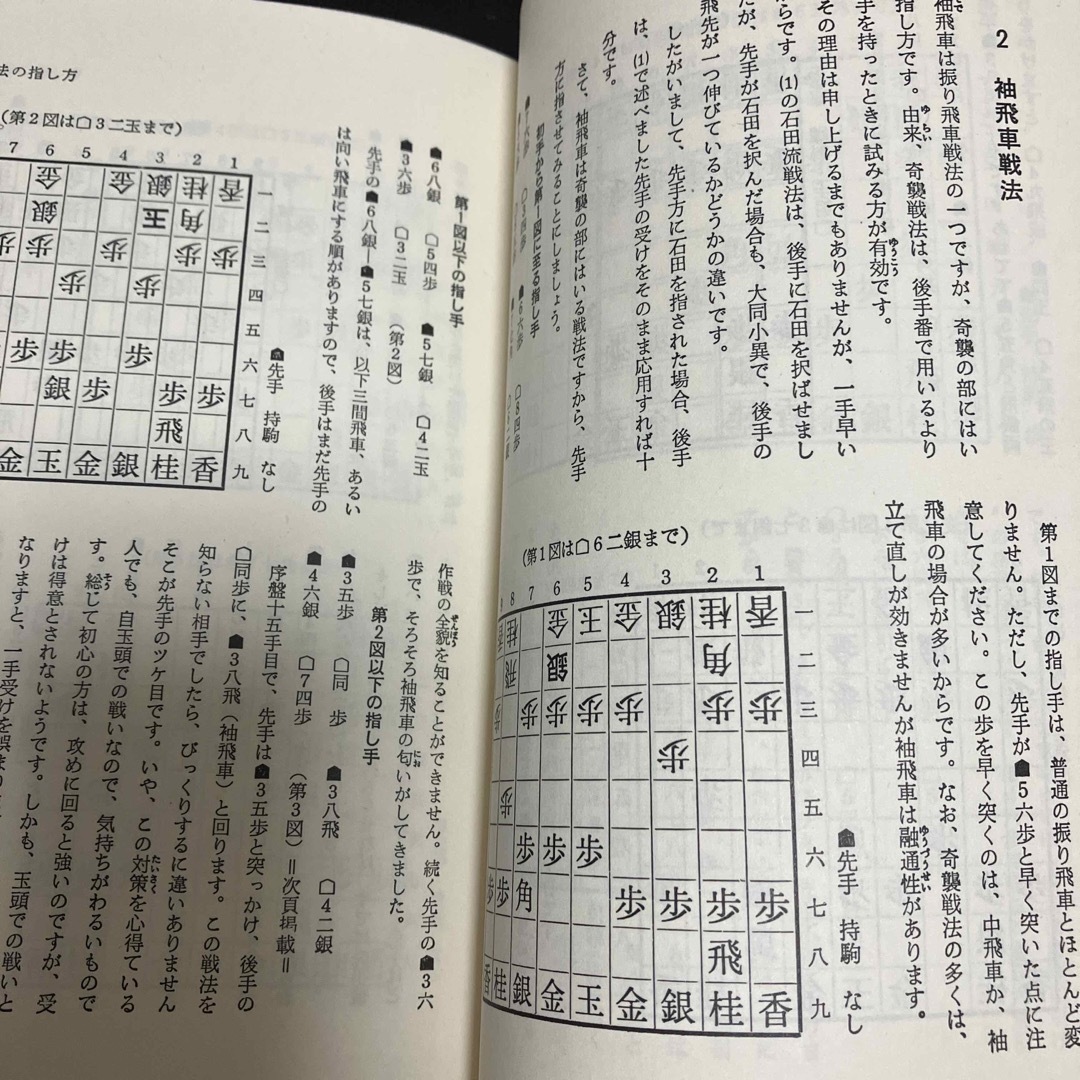 2 袖飛車戦法
袖飛車は振り飛車戦法の一つですが、奇襲の部にはい
指し方です。由来、奇襲戦法は、後手番で用いるより
手を持ったときに試みる方が有効です。
その理由は申し上げるまでもありませんが、一手早い
らです。(1)の石田流戦法は、後手に石田を択ばせまし
が、先手が石田を択んだ場合も、大同小異で、後手の
飛先が一つ伸びているかどうかの違いです。
したがいまして、先手方に石田を指された場合、後手
は、(1)で述べました先手の受けをそのまま応用すれば十
分です。
さて、袖飛車は奇襲の部にはいる戦法ですから、先手
方に指させてみることにしましょう。
初手から第1図に至る指し手
第1図までの指し手は、普通の振り飛車とほとんど変
りません。ただし、先手が☗5六歩と早く突いた点に注
意してください。この歩を早く突くのは、中飛車か、袖
飛車の場合が多いからです。なお、奇襲戦法の多くは、
立て直しが効きませんが袖飛車は融通性があります。
(第1図は☖6二銀まで)
8 7 6 5 4 3 2 1
一 二 三 四 五 六 七 八 九
☗先手 持駒 なし
法の指し方
(第2図は☖3二玉まで)
7 6 5 4 3 2 1
一 二 三 四 五 六 七 八 九
☗先手 持駒 なし
第1図以下の指し手
☗6八銀 ☖5四歩 ☗5七銀 ☖4二玉
☗3六歩 ☖3二玉 (第2図)
先手の☗6八銀—☗5七銀は、以下三間飛車、あるい
は向い飛車にする順がありますので、後手はまだ先手の
作戦の全貌を知ることができません。続く先手の☗3六
歩で、そろそろ袖飛車の匂いがしてきました。
第2図以下の指し手
☗3五歩 ☖同 歩 ☗3八飛 ☖4二銀
☗4六銀 ☖7四歩 (第3図)=次頁掲載=
序盤十五手目で、先手は☗3五歩と突っかけ、後手の
☖同歩に、☗3八飛(袖飛車)と回ります。この戦法を
知らない相手でしたら、びっくりするに違いありません
そこが先手のツケ目です。いや、この対策を心得ている
人でも、自玉頭での戦いなので、気持ちがわるいもので
す。総じて初心の方は、攻めに回ると強いのですが、受
けは得意とされないようです。しかも、玉頭での戦いと
なりますと、一手受けを誤まり